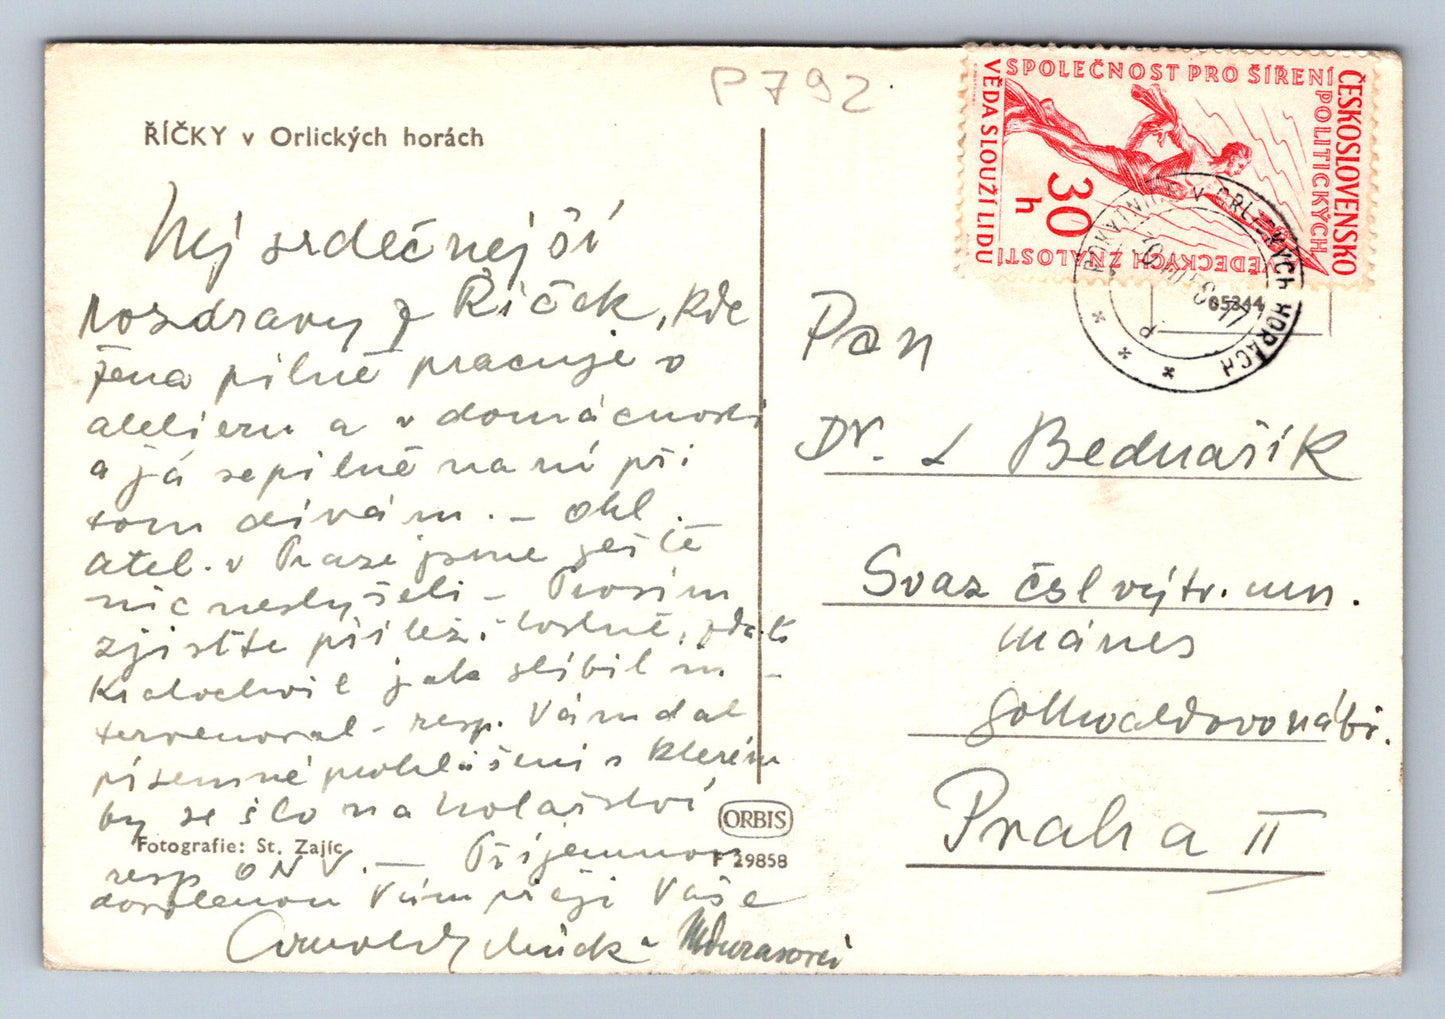 P792
ŘÍČKY v Orlických horách
Nejsrdečnejší
pozdravy z Říček, kde
žena pilně pracuje v
atelieru a v domácnosti
a já sepilně na ní při
tom dívám. – ohl.
atel. v Praze jsme ještě
nic neslyšeli – Prosím
zjistěte přílež. , zda
Kratochvil jak slíbil in-
tervenoval – resp. Vám dal
písemné prohlášení s kterém
by se šlo na kolařství
Fotografie: St. Zajíc
resp ONV. — Příjemnou
dovolenou Vám přejí Vaše
ORBIS
F 29858
ČESKOSLOVENSKO
SPOLEČNOST PRO ŠÍŘENÍ
POLITICKÝCH
VĚDECKÝCH ZNALOSTÍ
VĚDA SLOUŽÍ LIDU
30 h
ROKYTNICE V ORLICKÝCH HORÁCH
05344
Pan
Dr. L Bednařík
Svaz čsl výtr. um.
Mánes
Gottwaldovo nábř.
Praha II